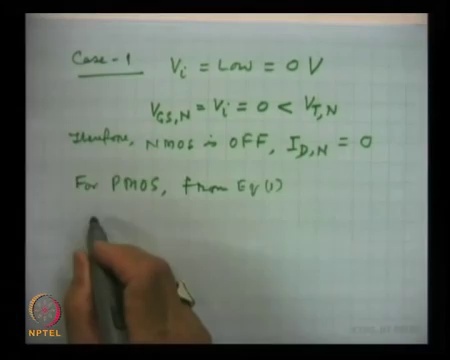 Case-1 Vi = Low = 0 V
VGS,N = Vi = 0 < VT,N
Therefore, NMOS is OFF, ID,N = 0
For PMOS, from Eq(1)
NPTEL